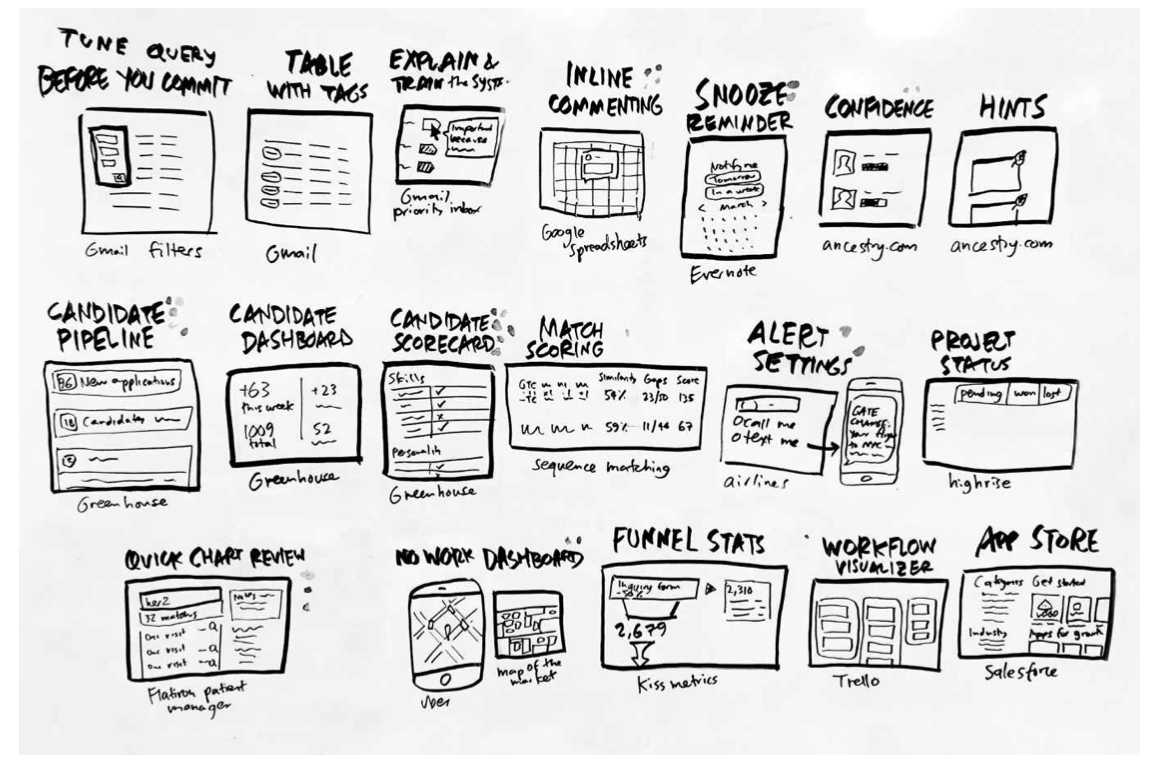 TUNE QUERY
BEFORE YOU COMMIT
Gmail filters
TABLE
WITH TAGS
Gmail
EXPLAIN &
TRAIN the SYST
Important
because
Gmail
priority inbox
INLINE
COMMENTING
Google
Spreadsheets
SNOOZE
REMINDER
Notify me
Tomorrow
In a week
< March >
Evernote
CONFIDENCE
ancestry.com
HINTS
ancestry.com
CANDIDATE
PIPELINE
New applications
Candidates
Greenhouse
CANDIDATE
DASHBOARD
+63
this week
+23
1009
total
52
Greenhouse
CANDIDATE
SCORECARD
Skills
Personality
Greenhouse
MATCH
SCORING
Similarity Gaps Score
23/50 135
59% 11/44 67
sequence matching
ALERT
SETTINGS
call me
text me
GATE
CHANGE:
Your flight
to NYC
airlines
PROJECT
STATUS
pending won lost
highrise
QUICK CHART REVIEW
her2
32 matches
One visit
One visit
One visit
Notes
Flatiron patient
manager
NO WORK DASHBOARD
Uber
map of the
market
FUNNEL STATS
Inquiry form
-50%
2,310
2,679
Kiss metrics
WORKFLOW
VISUALIZER
Trello
APP STORE
Categories Get started
Industry Apps for growth
Salesforce